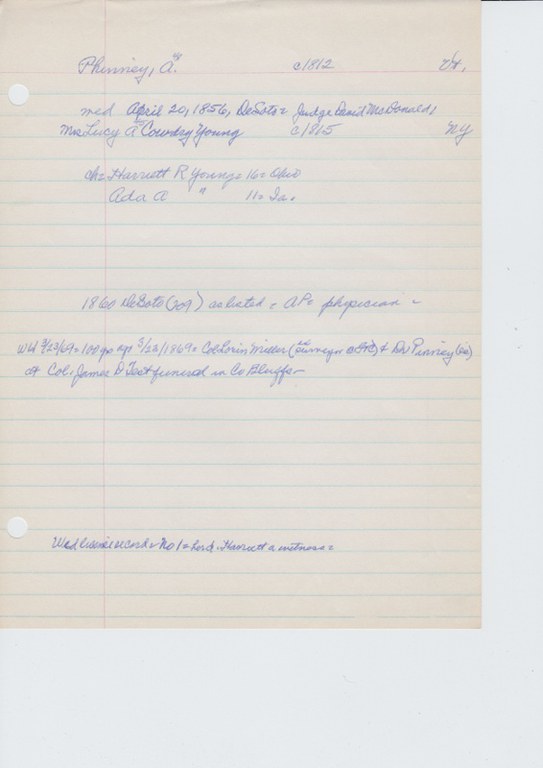 Phinney, A. c1812 Vt.
med April 20, 1856, DeSoto = Judge David McDonald,
Mrs Lucy A Cowdry Young c1815 NY
ch = Harriett R Young = 16 = Ohio
Ada A " 11 = Ia.
1860 DeSoto (209) as listed = AP = physician =
100 yrs ago 3/22/1869 = Col Lorin Miller ( & Dr Pinney (sic)
at Col. James D Test funeral in Co Bluffs =
Wed license record = No 1 = Harriett a witness =